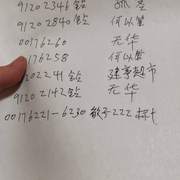 91202346 钻
91202840 钻 何以笙
00176260 无华
176258 何以笙
202241 钻 建事超市
91202142 钻 无华
00176221-6230 敏子222